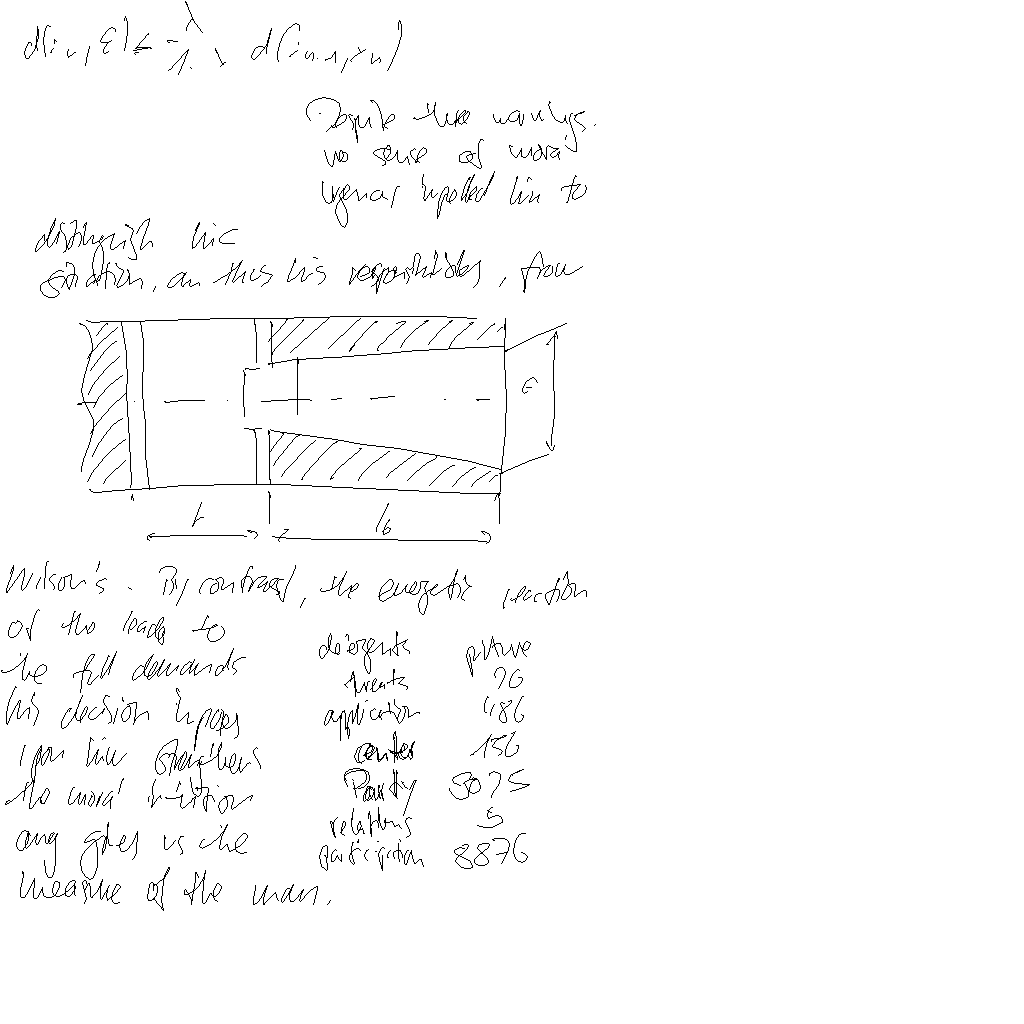 Despite these warnings.
no sense of moral
urgency impelled him to
distinguish his
situation, and thus his responsibilities, from
Wilson's. By contrast, the energetic reaction
of the leads to
the full demands
his decision imposes
upon him strengthens
the moral intuition
and gives us the
measure of the man.
detergents picture
treats 76
application 486
center 156
Party 3075
relations 5
participation 8876